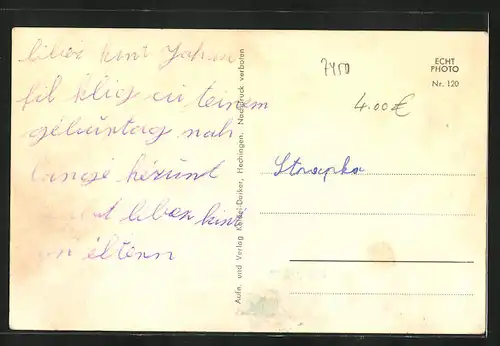 kint Johan
fil klig zu teinem
geburtag nah
lange herunt
liber kint
eltern
Aufn. und Verlag Keidel-Daiker, Hechingen. Nachdruck verboten
7450
ECHT
PHOTO
Nr. 120
4.00€
Strapka